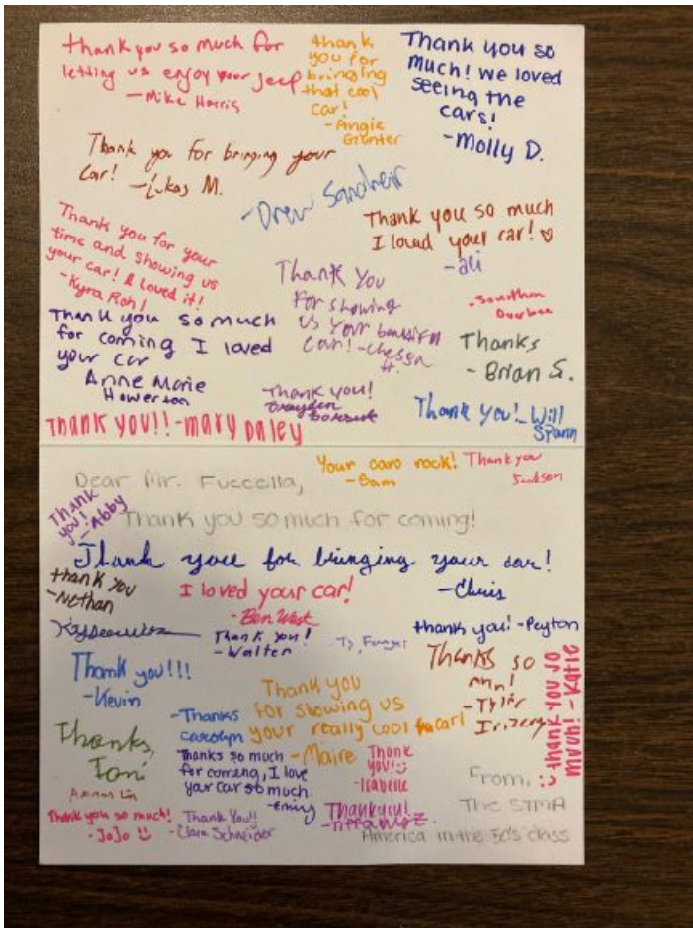 thank you so much for
letting us enjoy your jeep
- Mike Harris
thank
you for
bringing
that cool
car!
- Angie
Grunter
Thank you so
much! we loved
seeing the
cars!
- Molly D.
Thank you for bringing your
Car! - Lukas M.
- Drew
Thank you so much
I loved your car! ♡
- ali
Thank you for your
time and showing us
your car! I loved it!
- Kyra Roh!
Thank You
For showing
us Your beautiful
Car! - Chessa
H.
Jonathan
Overbee
Thank you so much
for coming I loved
your car
Anne Marie
Howerton
Thanks
- Brian S.
Thank you!
Brayden
Thank You! - Will
Spann
Thank you!! - mary Daley
Your cars rock!
- Sam
Thank you
Jackson
Dear Mr. Fuccella,
Thank
you!
- Abby
Thank you so much for coming!
Thank you for bringing your car!
- Chris
thank you
- Nethan
I loved your car!
- Ben West
thank you! - Peyton
Thank you!
- Walter
Ty,
Thank you!!!
- Kevin
Thanks so
- Tyler
Irizarry
thank you so
much! - Katie
Thank you
for showing us
your really cool car!
- Maire
- Thanks
Carolyn
Thanks,
Toni
Thanks so much
for coming, I love
your car so much.
- Emily
Thank
you! :)
- Isabelle
From, :)
The STMA
America in the 50's class
Aaron Lin
Thank you so much!
- JoJo :)
Thank You!!
- Clara Schneider
Thank you!
- Tiffany Z.